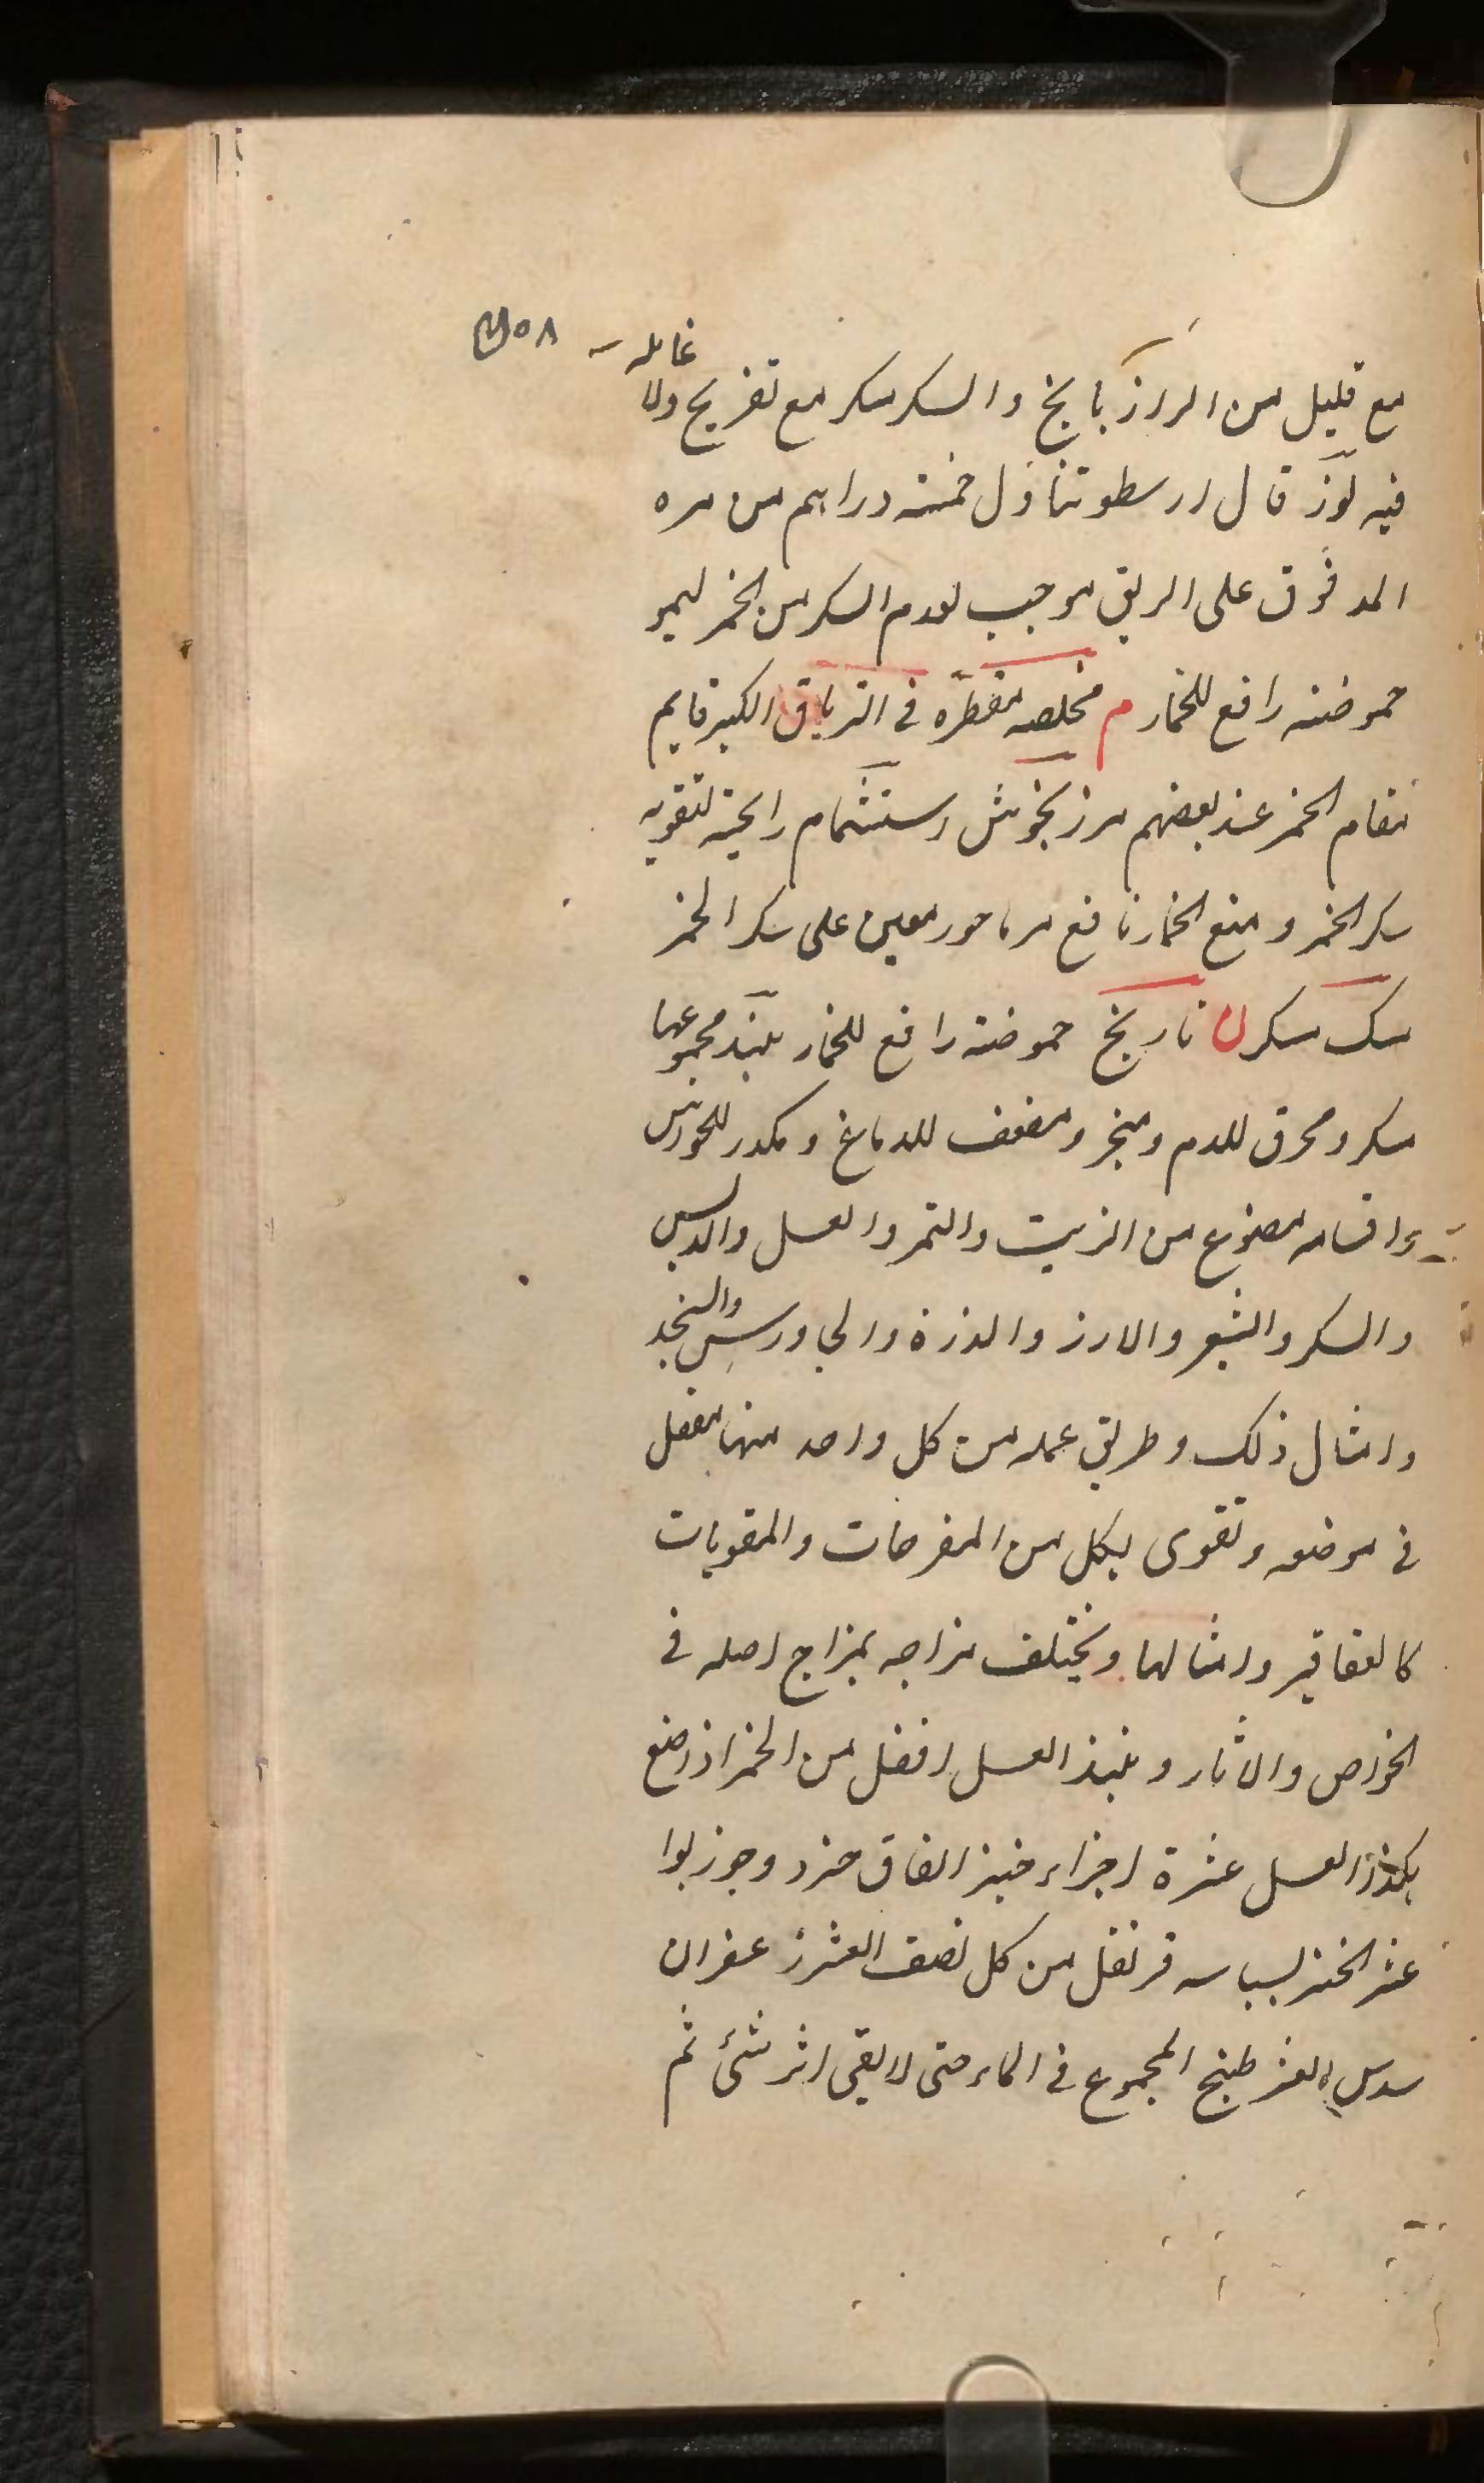 غائله
مع قليل من الرازيانج والسكر مسكر مع تفريح ولا
فيه لوز قال ارسطو تناول خمسة دراهم من مره
المدقوق على الريق موجب لعدم السكر من الخمر ليمو
حموضته رافع للخمار م مخلصه مقطره في الترياق الكبير قايم
مقام الخمر عند بعضهم مرزنجوش استشمام رايحته لتقويه
سكر الخمر و منع الخمار نافع مرماحور معين على سكر الخمر
سك مسكر ن نارنج حموضته رافع للخمار نبيذ مجموعها
مسكر ومحرق للدم ومبخر ومضعف للدماغ و مكدر للحواس
واقسامه مصنوع من الزبيب والتمر والعسل والدبس
والسكر والشعير والارز والذرة والجاورس والسنجد
وامثال ذلك وطريق عمله من كل واحد منها مفصل
في موضعه وتقوى بكل من المفرحات والمقويات
كالعقاقير وامثالها ويختلف مزاجه بمزاج اصله في
الخواص والاثار ونبيذ العسل افضل من الخمر اذا صنع
هكذا العسل عشرة اجزاء خبز الفاق جزء وجوز بوا
عشر الخبز بسباسه قرنفل من كل نصف العشر زعفران
سدس العشر طبخ المجموع في الماء حتى لا يبقى اثر شئ ثم